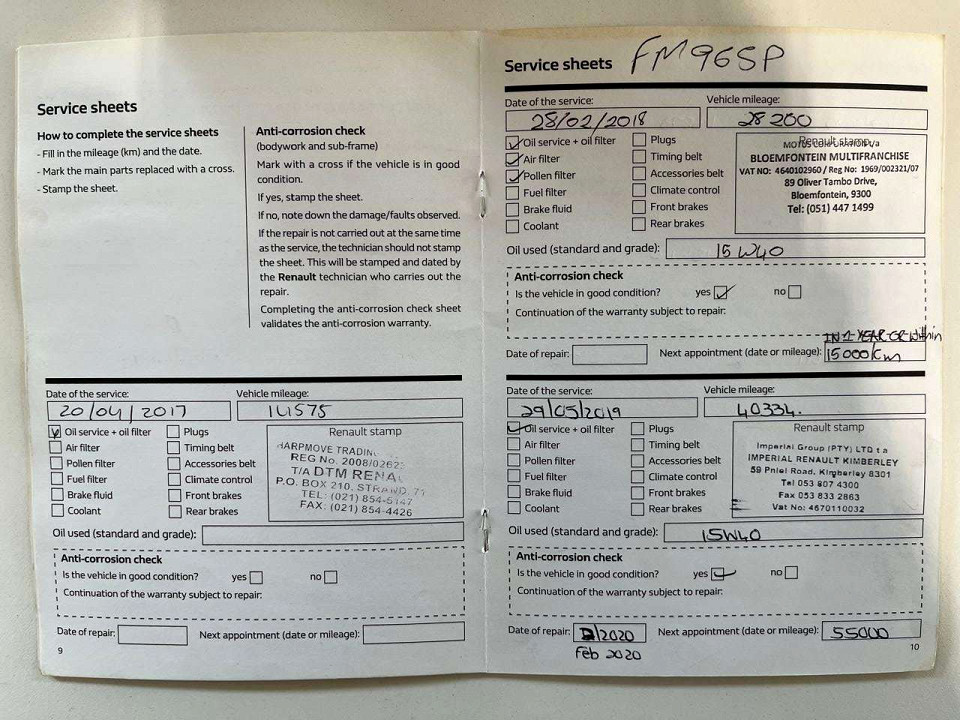 Service sheets
How to complete the service sheets
- Fill in the mileage (km) and the date.
- Mark the main parts replaced with a cross.
- Stamp the sheet.
Anti-corrosion check
(bodywork and sub-frame)
Mark with a cross if the vehicle is in good
condition.
If yes, stamp the sheet.
If no, note down the damage/faults observed.
If the repair is not carried out at the same time
as the service, the technician should not stamp
the sheet. This will be stamped and dated by
the Renault technician who carries out the
repair.
Completing the anti-corrosion check sheet
validates the anti-corrosion warranty.
Date of the service: Vehicle mileage:
20/04/2017 14575
Oil service + oil filter Plugs Renault stamp
Air filter Timing belt
Pollen filter Accessories belt
Fuel filter Climate control
Brake fluid Front brakes
Coolant Rear brakes
HARPMOVE TRADING
REG No. 2008/0262
T/A DTM RENA
P.O. BOX 210, STRAND, 71
TEL: (021) 854-5147
FAX: (021) 854-4426
Oil used (standard and grade):
Anti-corrosion check
Is the vehicle in good condition? yes no
Continuation of the warranty subject to repair:
Date of repair: Next appointment (date or mileage):
9
Service sheets FM96SP
Date of the service: Vehicle mileage:
28/02/2018 28 200
Oil service + oil filter Plugs Renault stamp
Air filter Timing belt
Pollen filter Accessories belt
Fuel filter Climate control
Brake fluid Front brakes
Coolant Rear brakes
t/a
BLOEMFONTEIN MULTIFRANCHISE
VAT NO: 4640102960 / Reg No: 1969/002321/07
89 Oliver Tambo Drive,
Bloemfontein, 9300
Tel: (051) 447 1499
Oil used (standard and grade): 15W40
Anti-corrosion check
Is the vehicle in good condition? yes no
Continuation of the warranty subject to repair:
IN 1 YEAR OR within
Date of repair: Next appointment (date or mileage): 15000km
Date of the service: Vehicle mileage:
29/05/2019 40334.
Oil service + oil filter Plugs Renault stamp
Air filter Timing belt
Pollen filter Accessories belt
Fuel filter Climate control
Brake fluid Front brakes
Coolant Rear brakes
Imperial Group (PTY) LTD t a
IMPERIAL RENAULT KIMBERLEY
59 Phiel Road, Kimberley 8301
Tel 053 807 4300
Fax 053 833 2863
Vat No: 4670110032
Oil used (standard and grade): 15W40
Anti-corrosion check
Is the vehicle in good condition? yes no
Continuation of the warranty subject to repair:
Date of repair: 2/2020 Next appointment (date or mileage): 55000
Feb 2020
10